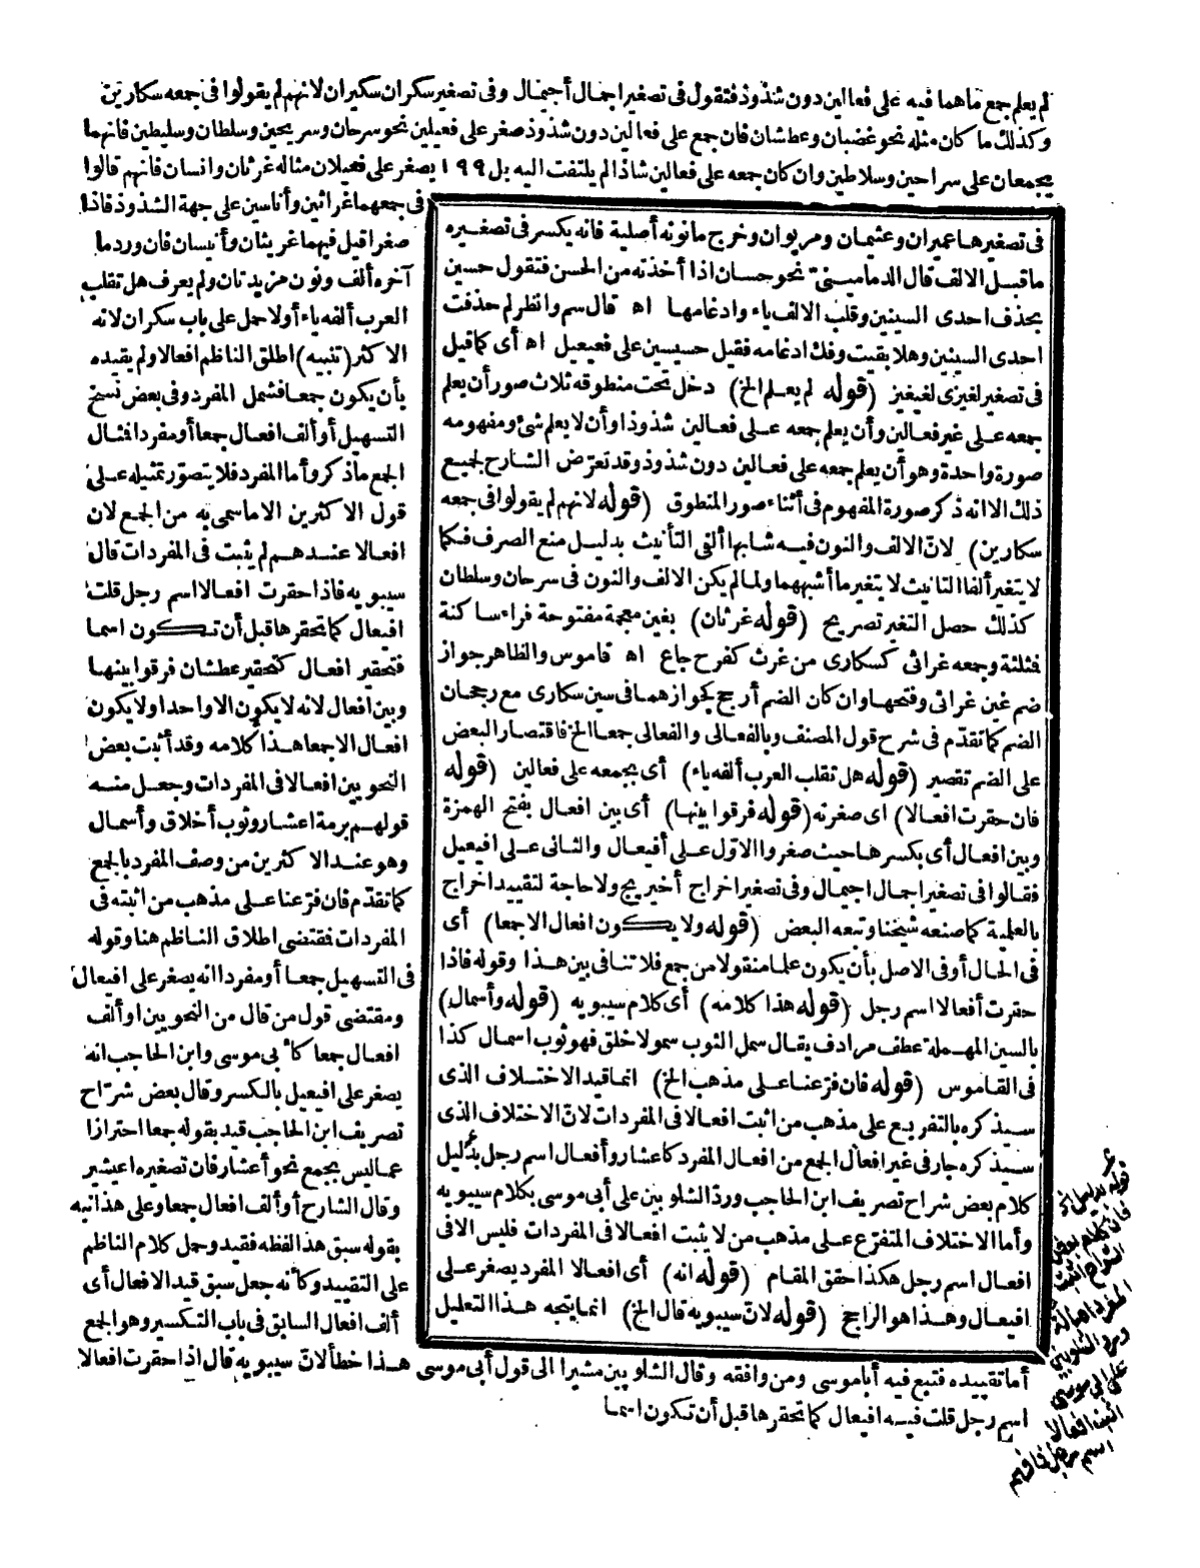 لم يعلم جمع ماهما فيه على فعالين دون شذوذ فتقول فى تصغير اجمال أجيمال وفى تصغير سكران سكيران لانهم لم يقولوا فى جمعه سكارين
وكذلك ما كان مثله نحو غضبان وعطشان فان جمع على فعالين دون شذوذ صغر على فعيلين نحو سرحان وسريحين وسلطان وسليطين فانهما
يجمعان على سراحين وسلاطين وان كان جمعه على فعالين شاذا لم يلتفت اليه بل ١٩٩ يصغر على فعيلان مثاله غرثان وانسان فانهم قالوا
فى جمعهما غراثين وأناسين على جهة الشذوذ فاذا
صغرا قيل فيهما غريثان وأنيسان فان ورد ما
آخره ألف ونون مزيدتان ولم يعرف هل تقلب
العرب ألفه ياء أولا حمل على باب سكران لانه
الاكثر (تنبيه) اطلق الناظم افعالا ولم يقيده
بأن يكون جمعا فشمل المفرد وفى بعض نسخ
التسهيل أو ألف افعال جمعا أو مفردا فثال
الجمع ماذكر وأما المفرد فلا يتصور تمثيله على
قول الاكثرين الا ماسمى به من الجمع لان
افعالا عندهم لم يثبت فى المفردات قال
سيبويه فاذا حقرت افعالا اسم رجل قلت
افيعال كما تحقرها قبل أن تكون اسما
فتحقير افعال كتحقير عطشان فرقوا بينها
وبين افعال لانه لا يكون الا واحدا ولا يكون
افعال الا جمعا هذا كلامه وقد أثبت بعض
النحويين افعالا فى المفردات وجعل منه
قولهم برمة اعشار وثوب أخلاق وأسمال
وهو عند الاكثرين من وصف المفرد بالجمع
كما تقدّم فان فرّعنا على مذهب من اثبته فى
المفردات فقتضى اطلاق الناظم هنا وقوله
فى التسهيل جمعا أو مفردا انه يصغر على افيعال
ومقتضى قول من قال من النحويين او ألف
افعال جمعا كأبى موسى وابن الحاجب انه
يصغر على افيعيل بالكسر وقال بعض شرّاح
تصريف ابن الحاجب قيد بقوله جمعا احترازا
عما ليس بجمع نحو أعشار فان تصغيره اعيشير
وقال الشارح أو ألف افعال جمعا وعلى هذا نبه
بقوله سبق هذا لفظه فقيد وحمل كلام الناظم
على التقييد وكأنه جعل سبق قيد الافعال أى
ألف افعال السابق فى باب التكسير وهو الجمع
أما تقييده فتبع فيه أبا موسى ومن وافقه وقال الشلوبين مشيرا الى قول أبى موسى هذا خطأ لانّ سيبويه قال اذا حقرت افعالا
اسم رجل قلت فيه افيعال كما تحقرها قبل أن تكون اسما
فى تصغيرها عميران وعثيمان ومريوان وخرج مانونه أصلية فانه يكسر فى تصغيره
ماقبل الالف قال الدمامينىّ نحو حسان اذا أخذته من الحسن فتقول حسين
بحذف احدى السينين وقلب الالف ياء وادغامها اه قال سم وانظر لم حذفت
احدى السينين وهلا بقيت وفك ادغامه فقيل حسيسين على فعيعيل اه أى كما قيل
فى تصغير لغيزى لغيغيز (قوله لم يعلم الخ) دخل تحت منطوقه ثلاث صور أن يعلم
جمعه على غير فعالين وأن يعلم جمعه على فعالين شذوذا وأن لا يعلم شئ ومفهومه
صورة واحدة وهو أن يعلم جمعه على فعالين دون شذوذ وقد تعرّض الشارح لجميع
ذلك الا انه ذكر صورة المفهوم فى أثناء صور المنطوق (قوله لانهم لم يقولوا فى جمعه
سكارين) لانّ الالف والنون فيه شابها ألفى التأنيث بدليل منع الصرف فكما
لا تتغير ألفا التانيث لا يتغير ما أشبههما ولما لم يكن الالف والنون فى سرحان وسلطان
كذلك حصل التغير تصريح (قوله غرثان) بغين معجمة مفتوحة فراء ساكنة
فثلثة وجمعه غراثى كسكارى من غرث كفرح جاع اه قاموس والظاهر جواز
ضم غين غراثى وفتحها وان كان الضم أرجح كجوازهما فى سين سكارى مع رجحان
الضم كما تقدّم فى شرح قول المصنف وبالفعالى والفعالى جمعا الخ فاقتصار البعض
على الضم تقصير (قوله هل تقلب العرب ألفه ياء) أى بجمعه على فعالين (قوله
فان حقرت افعالا) اى صغرته (قوله فرقوا بينها) أى بين افعال بفتح الهمزة
وبين افعال أى بكسرها حيث صغروا الاول على أفيعال والثانى على افيعيل
فقالوا فى تصغير اجمال اجيمال وفى تصغير اخراج أخيريج ولا حاجة لتقييد اخراج
بالعلمية كما صنعه شيخنا وتبعه البعض (قوله ولا يكون افعال الا جمعا) أى
فى الحال أو فى الاصل بأن يكون علما منقولا من جمع فلا تنافى بين هذا وقوله فاذا
حقرت أفعالا اسم رجل (قوله هذا كلامه) أى كلام سيبويه (قوله وأسمال)
بالسين المهملة عطف مرادف يقال سمل الثوب سمولا خلق فهو ثوب اسمال كذا
فى القاموس (قوله فان فرّعنا على مذهب الخ) انما قيد الاختلاف الذى
سيذكره بالتفريع على مذهب من اثبت افعالا فى المفردات لانّ الاختلاف الذى
سيذكره جار فى غير افعال الجمع من افعال المفرد كاعشار وأفعال اسم رجل بدليل
كلام بعض شراح تصريف ابن الحاجب وردّ الشلوبين على أبى موسى بكلام سيبويه
وأما الاختلاف المتفرّع على مذهب من لا يثبت افعالا فى المفردات فليس الا فى
افعال اسم رجل هكذا حقق المقام (قوله انه) أى افعالا المفرد يصغر على
افيعال وهذا هو الراجح (قوله لانّ سيبويه قال الخ) انما يتجه هذا التعليل
قوله بدليل الخ
فان كلام بعض
الشراح اثبت
المفرد اهمالة
ورد الشلوبين
على ابى موسى
اثبت افعالا
اسم رجل فافهم